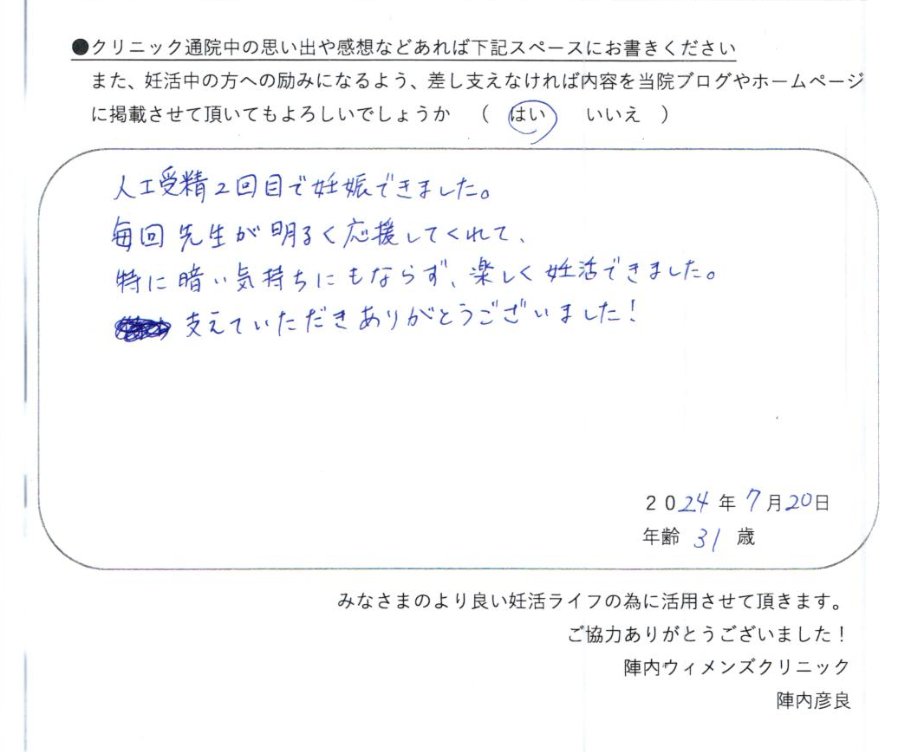 ●クリニック通院中の思い出や感想などあれば下記スペースにお書きください
また、妊活中の方への励みになるよう、差し支えなければ内容を当院ブログやホームページ
に掲載させて頂いてもよろしいでしょうか （ はい いいえ ）
人工受精2回目で妊娠できました。
毎回先生が明るく応援してくれて、
特に暗い気持ちにもならず、楽しく妊活できました。
支えていただきありがとうございました！
2024年7月20日
年齢 31 歳
みなさまのより良い妊活ライフの為に活用させて頂きます。
ご協力ありがとうございました！
陣内ウィメンズクリニック
陣内彦良